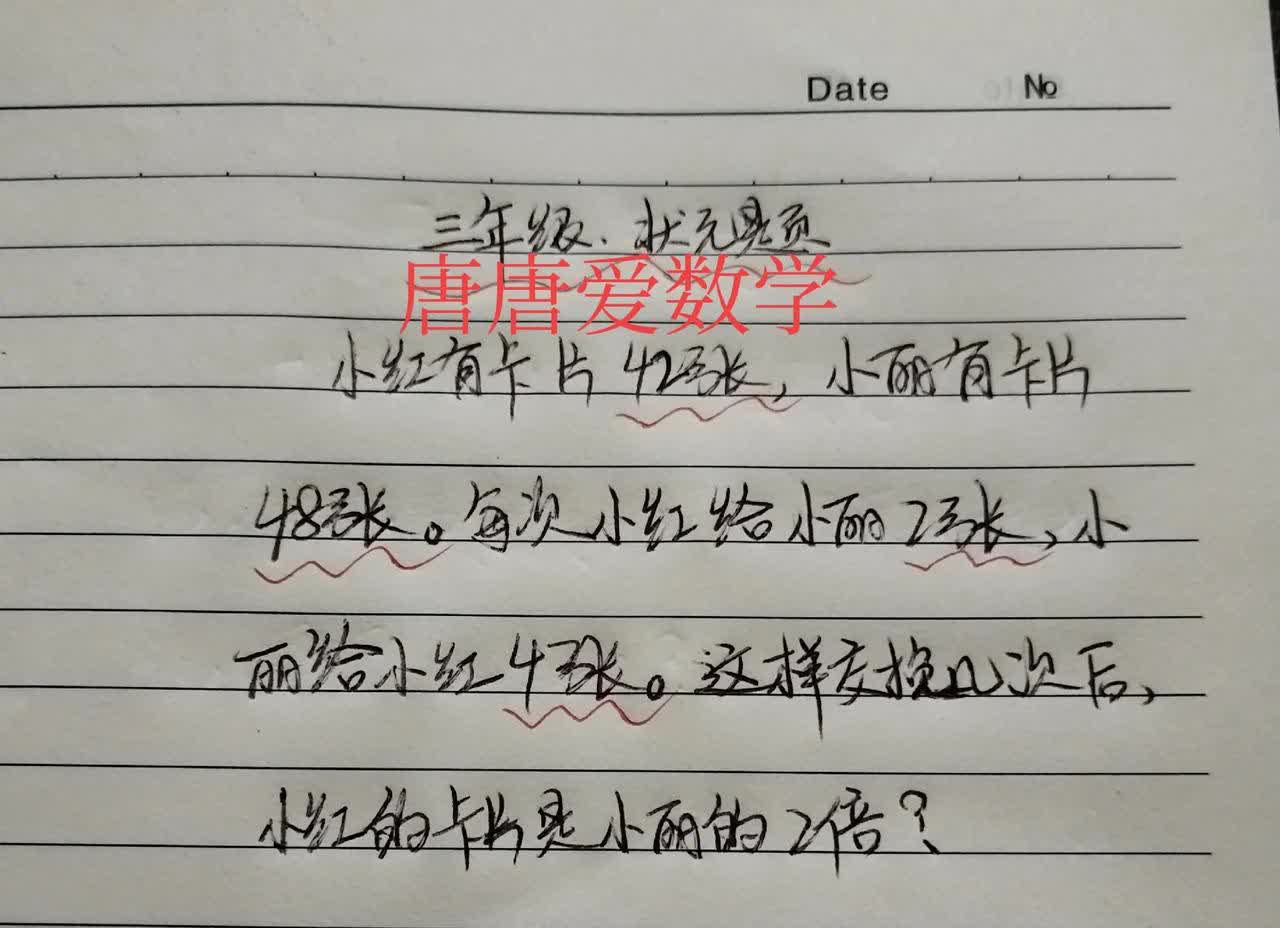 Date №
三年级.状元题页
唐唐爱数学
小红有卡片42张，小丽有卡片
48张。每次小红给小丽2张，小
丽给小红4张。这样交换几次后，
小红的卡片是小丽的2倍？